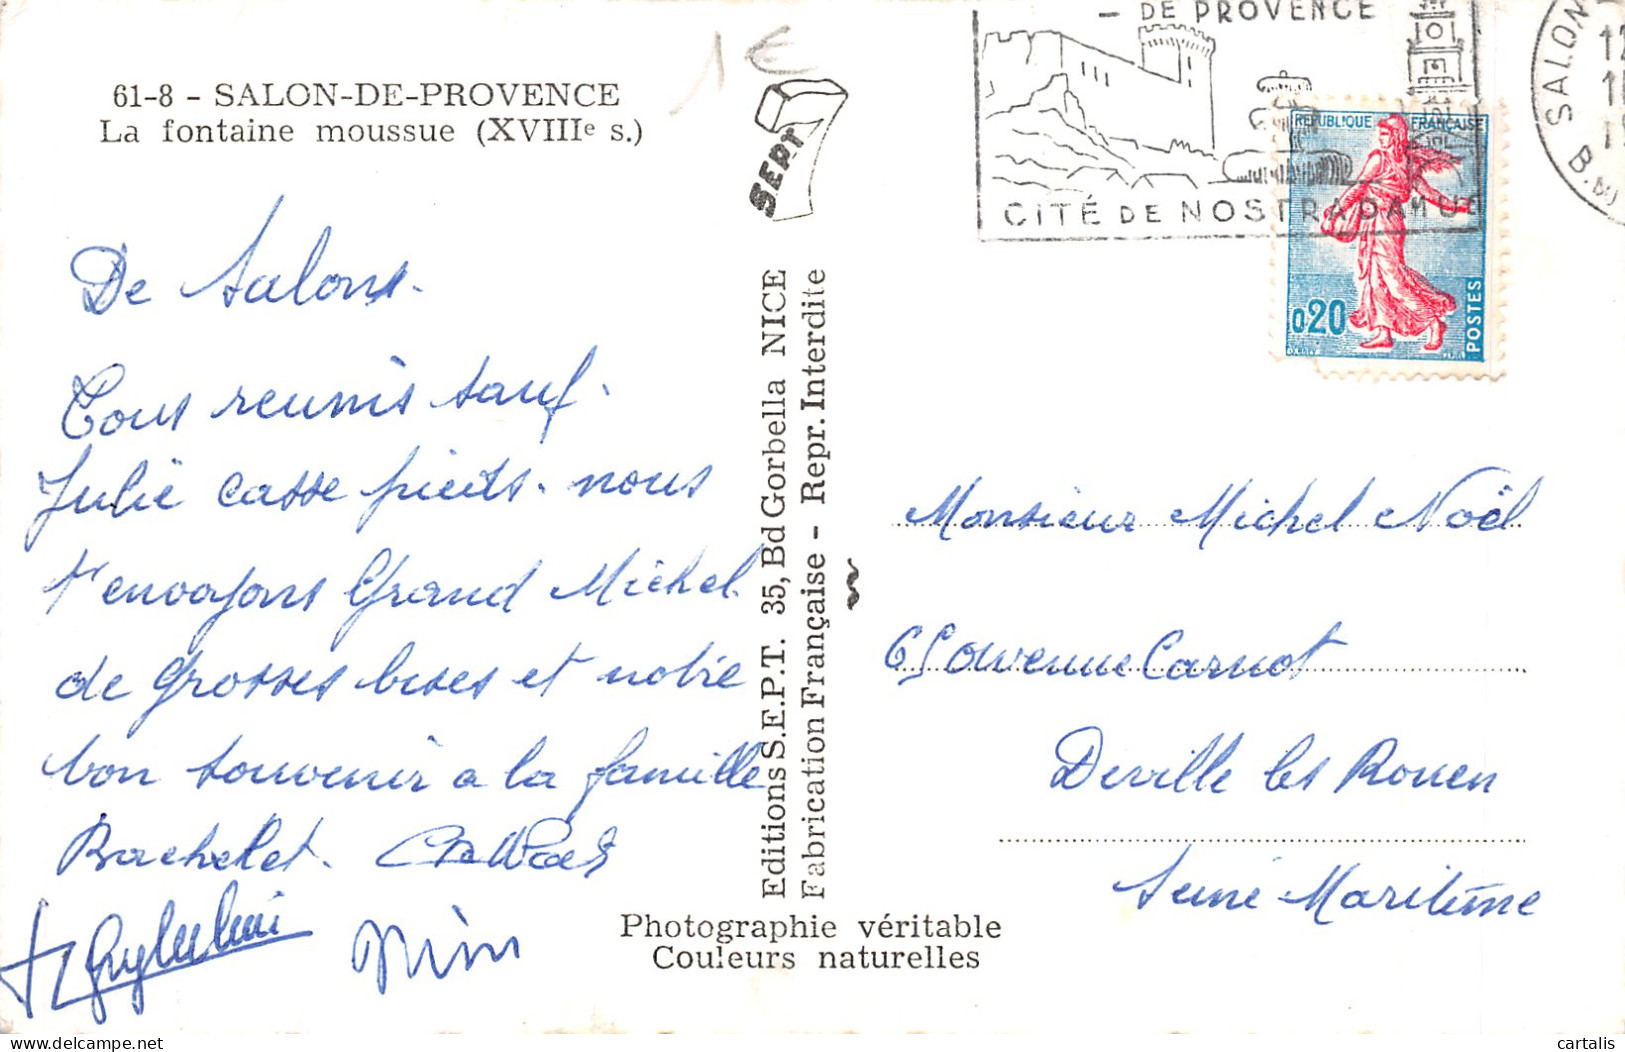 61-8 - SALON-DE-PROVENCE
La fontaine moussue (XVIIIe s.)
1€
SEPT
De Salons.
Tous reunis sauf.
Julie casse pieds. nous
t'envoyons Grand Michel
de grosses bises et notre
bon souvenir a la famille
Bachelet.
Mimi
Editions S.E.P.T. 35, Bd Gorbella NICE
Fabrication Française - Repr. Interdite
Photographie véritable
Couleurs naturelles
- DE PROVENCE
CITÉ DE NOSTRADAMUS
SALON
B. DU
REPUBLIQUE FRANÇAISE
0,20
POSTES
Monsieur Michel Noël
65 avenue Carnot
Deville les Rouen
Seine Maritime
delcampe.net
cartalis